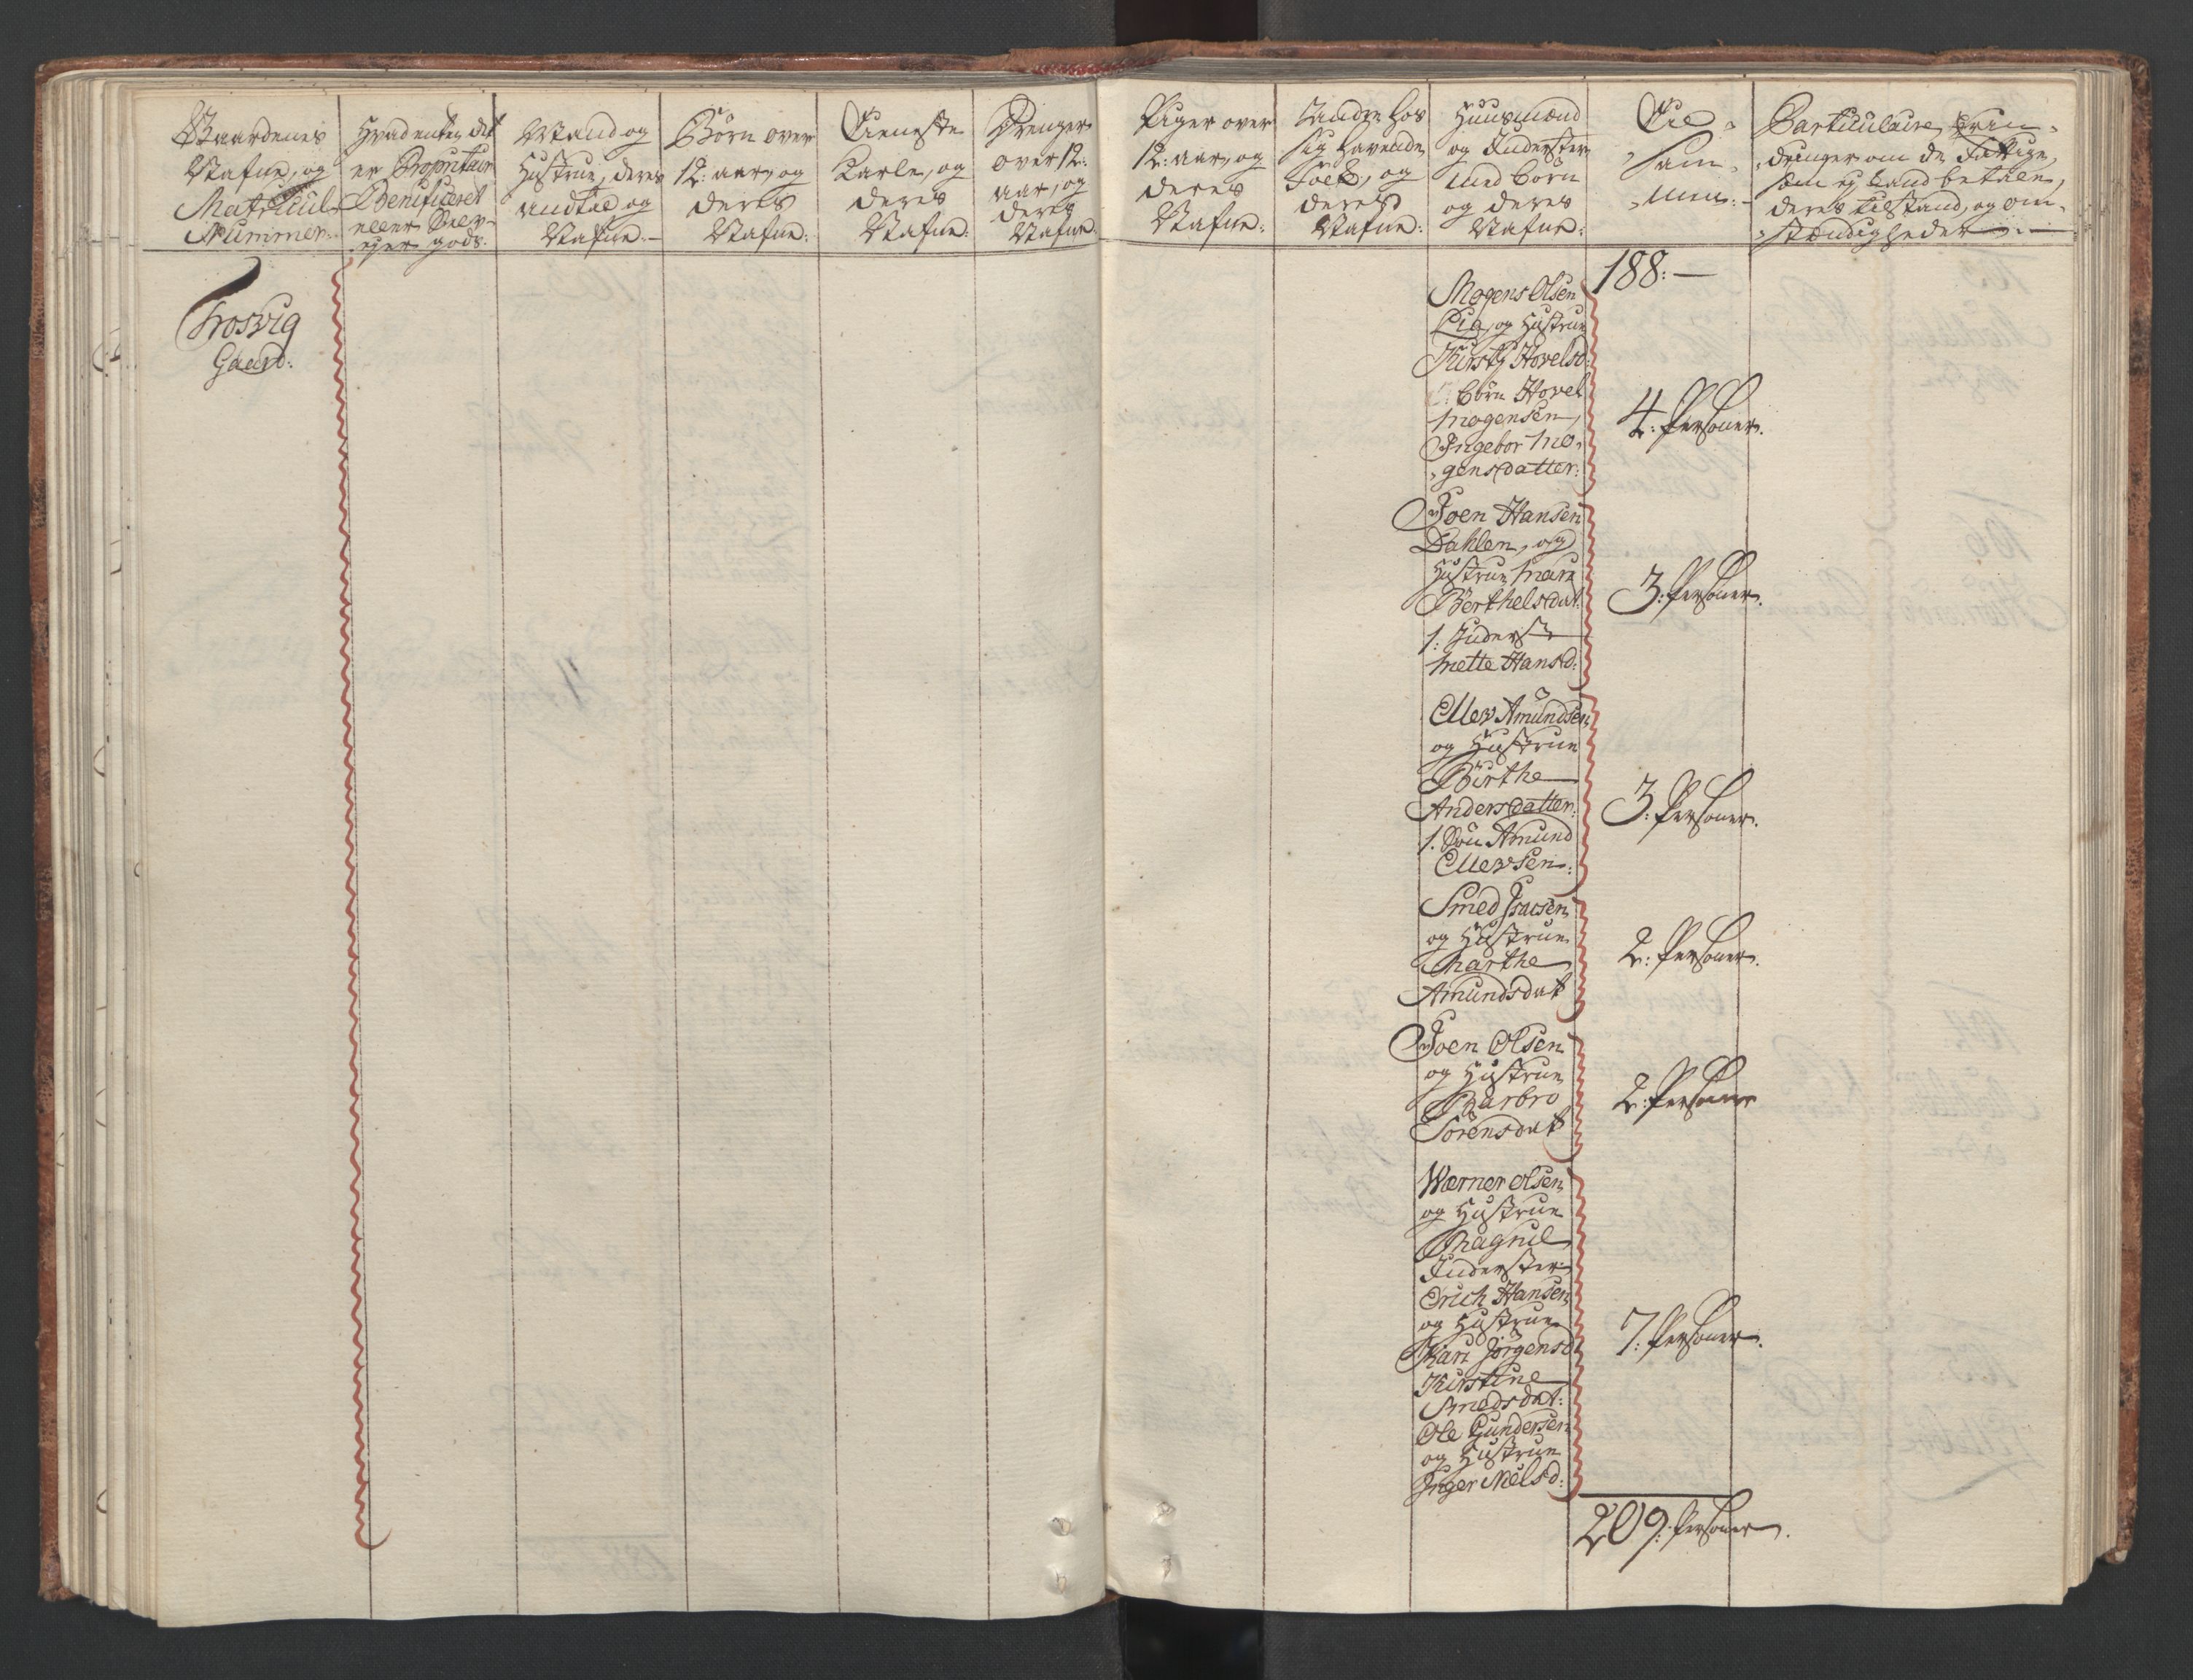 Gaardenes
Nafne, og
Matricul
Nummer:
Hvad enten det
er Propritair
Benificeret
eller Selv-
ejer gods.
Mand og
Hustrue, deres
andtal og
Nafne.
Børn over
12: aar, og
deres
Nafne:
Tieneste
Karle, og
deres
Nafne:
Drenger
over 12:
aar, og
deres
Nafne.
Piger over
12: aar, og
deres
Nafne:
Andre hos
sig havende
Folk, og
deres
Nafne:
Huusmænd
og Inderster
med børn
og deres
Nafne:
Til-
sam-
men:
Particulaire Erin-
dringer om de Fattige,
som ej kand betale,
deres tilstand, og om-
stændigheder
Trosvig
Gaard:
188:
Mogens Olsen
Lia, og Hustrue
Kirsti Hovelsd:
børn Hovel
Mogensen,
Ingebor Mo-
gensdatter:
4: Persohner.
Joen Hansen
Dahlen, og
Hustrue Mari
Berthelsdat:
1: Inderste
Mette Hansd:
3: Persohner.
Ellev Amundsen
og Hustrue
Birthe
Andersdatter:
1. Søn Amund
Ellevsen:
3: Persohner.
Smed Isacsen
og Hustrue
Marthe
Amundsdat
2: Persohner.
Joen Olsen
og Hustrue
Barbro
Sørensdat
2: Persohner
Wærner Olsen
og Hustrue
Ragnil
Inderster
Erich Hansen
og Hustrue
Kari Jørgensd
Kirstine
Smedsdat:
Ole Gundersen
og Hustrue
Inger Nielsd:
7: Persohner.
209: Persohner.